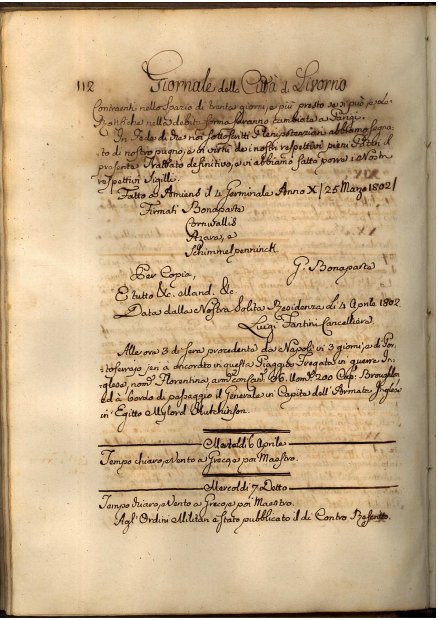 112 Giornale della Città di Livorno
Contraenti nello Spazio di trenta giorni, e più presto se si può, e le
Ratifiche nella debita forma saranno cambiate a Parigi.
In Fede di che noi sottoscritti Plenipotenziari abbiamo segna-
to di nostro pugno, e in virtù dei nostri respettivi pieni Poteri il
presente Trattato definitivo, e vi abbiamo fatto porre i Nostri
respettivi Sigilli.
Fatto a Amiens il 4 Germinale Anno X / 25 Marzo 1802 /
Firmati Bonaparte
Cornwallis
Azara, e
Schimmelpenninck.
Per Copia, G. Bonaparte
E tutto &c. mand. &c.
Data dalla Nostra Solita Residenza di 4 Aprile 1802
Luigi Fantini Cancelliere.
Alle ore 3 di sera procedente da Napoli in 3 giorni, e di Por-
toferrajo, si è ancorato in questa Spiaggia Fregata in guerra In-
glese, nom.ª Florentina, arm. con Can. 36. Uom. N.º 200 Cap.
ed à bordo di passaggio il Generale in Capite dell'Armata Inglese
in Egitto Mylord Hutchinson.
Martedì 6 Aprile
Tempo chiaro, e Vento a Greco e poi Maestro.
Mercoldì 7 Detto
Tempo chiaro, e Vento a Greco e poi Maestro.
Agl'Ordini Militari è stato pubblicato il di Contro Rescritto.